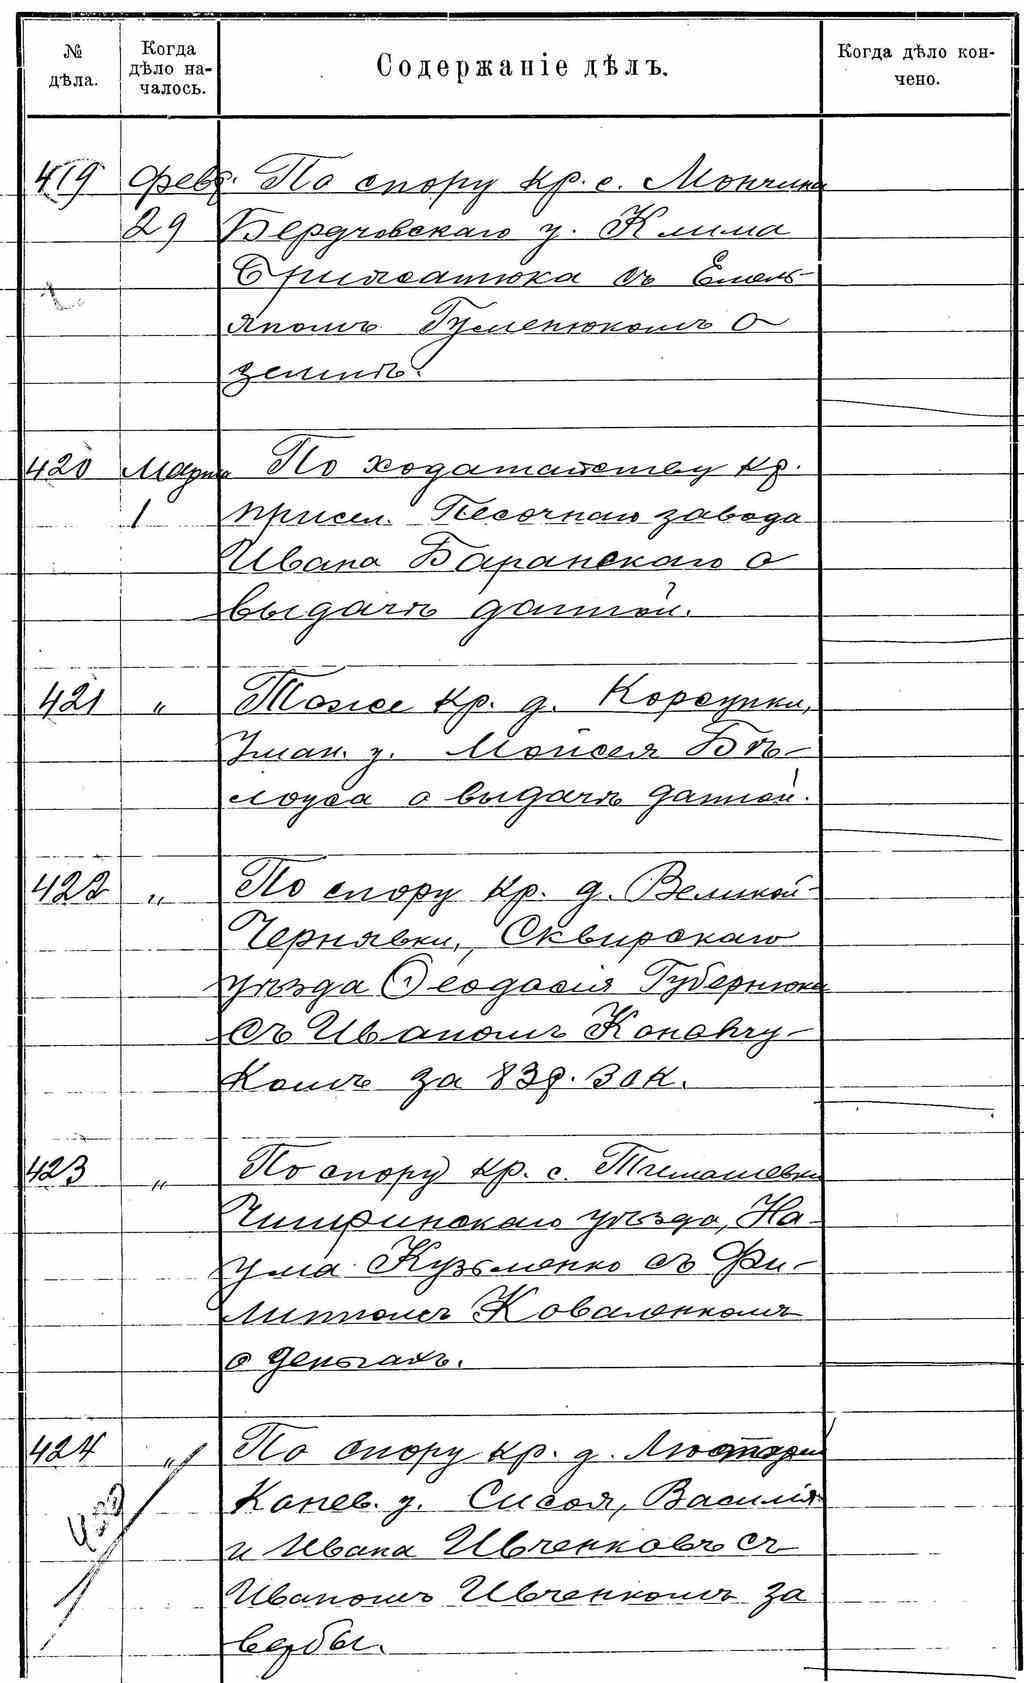 № дѣла.
Когда дѣло на-чалось.
Содержаніе дѣлъ.
Когда дѣло кон-чено.
419 Февр. По спору кр. с. Мончина
29 Бердичовскаго у. Клима
съ Емель-
яномъ Гуменюкомъ о
землѣ.
420 Марта По ходатайству кр.
1 присел. Песочнаго завода
Ивана Баранскаго о
выдачѣ данной.
421 " Тоже кр. д. Корсунки,
Уман. у. Мойсея Бѣ-
лоуса о выдачѣ данной.
422 " По спору кр. д. Великой-
Чернявки, Сквирскаго
уѣзда Ѳеодосія Губернюка
съ Иваномъ Конончу-
комъ за 83 р. 30 к.
423 " По спору кр. с. Тимошевки
Чигиринскаго уѣзда, На-
ума Кузьменко съ Фи-
липпомъ Коваленкомъ
о деньгахъ.
424 " По спору кр. д.
Канев. у. Сисоя, Василія
и Ивана Ивченковъ съ
Иваномъ Ивченкомъ за
вербы.